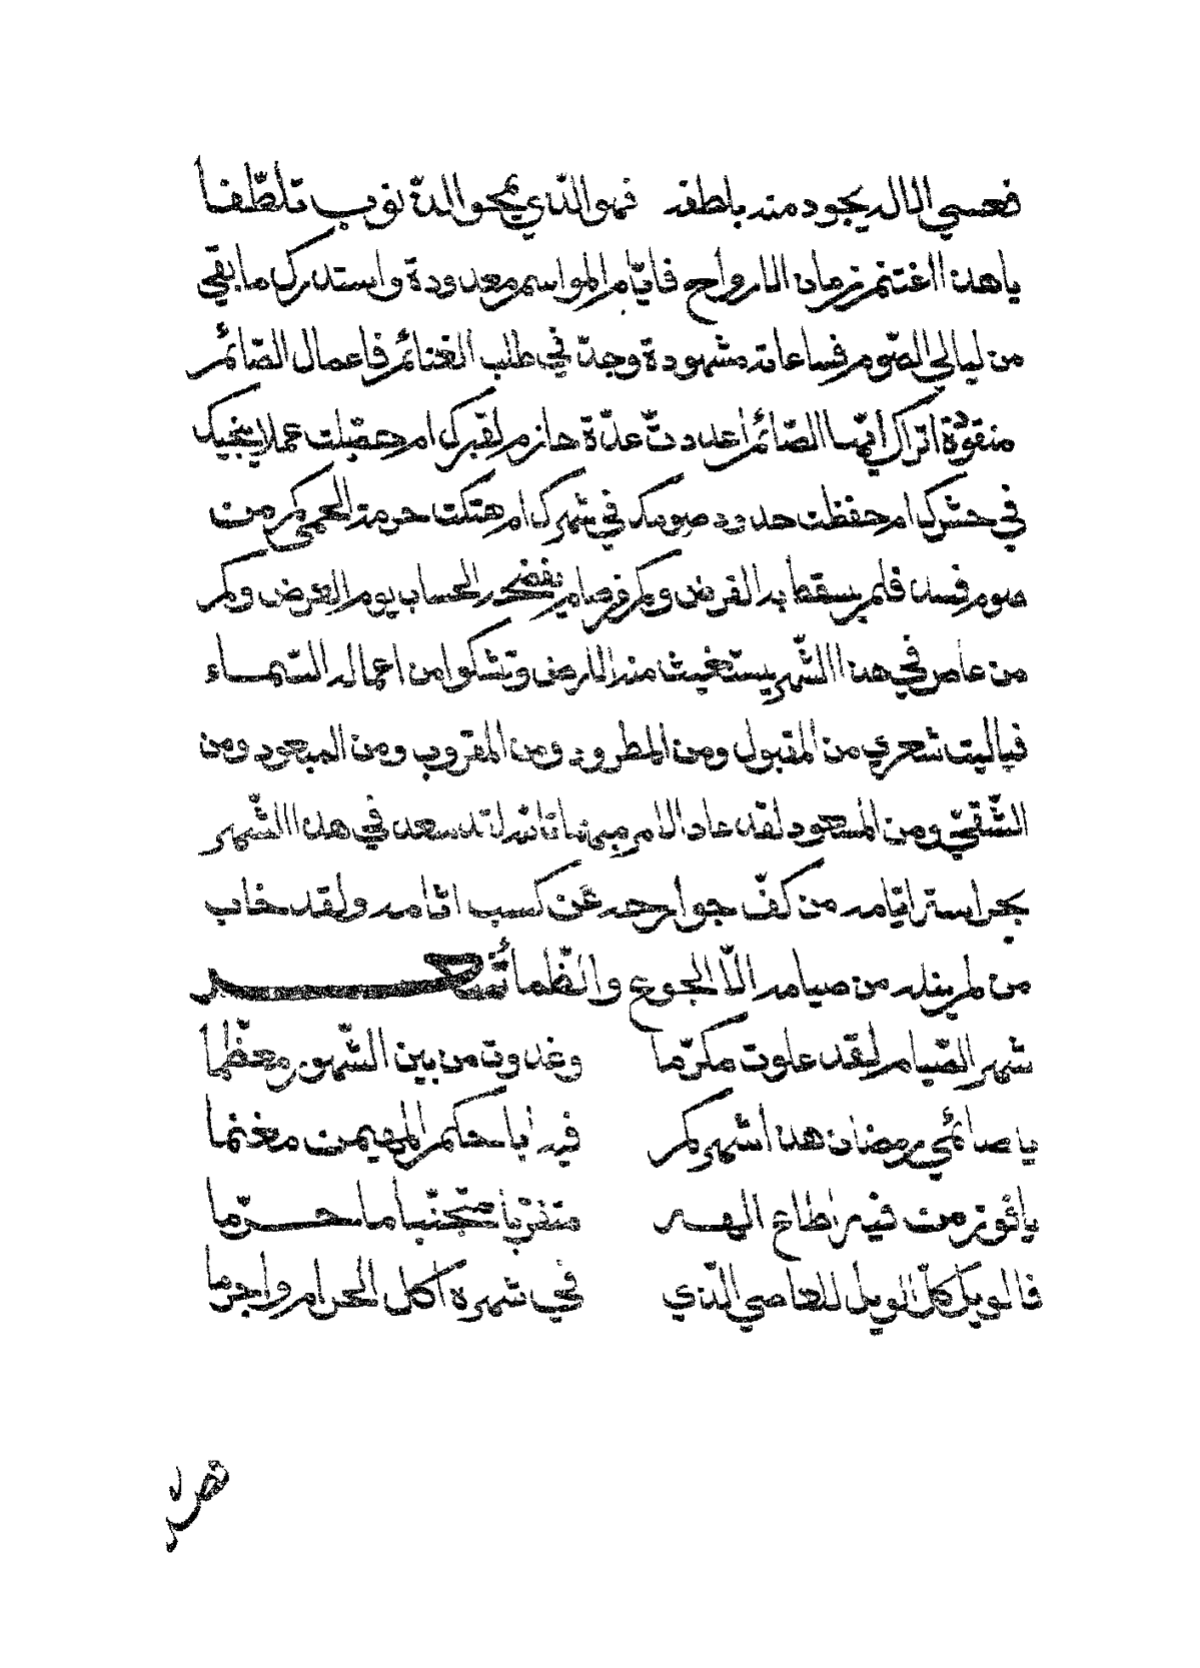 فعسى الاله يجود منه بلطفه فهو الذي يمحو الذنوب تلطّفا
يا هذا اغتنم زمان الارواح فايّام المواسم معدودة واستدرك ما بقي
من ليالي الصّوم فساعاته مشهودة وجدّ في طلب الغنائم فاعمال الصّائم
منقودة اتراك ايّها الصّائم اعددتّ عدّة حازم لقبرك ام حصّلت عملا ينجيك
في حشرك ام حفظت حدود صومك في شهرك ام هتكت حرمة الحمى كم من
صوم فسد فلم يسقط به الفرض وكم من صايم يفضحه الحساب يوم العرض وكم
من عاص في هذا الشّهر يستغيث منه الارض وتشكوا من اعماله السّماء
فياليت شعري من المقبول ومن المطرود ومن المقروب ومن المبعود ومن
الشّقيّ ومن المسعود لقد عاد الامر مبهما تاللّه لقد سعد في هذا الشّهر
بحراسة ايّامه من كفّ جوارحه عن كسب اثامه ولقد خاب
من لم ينله من صيامه الّا الجوع والظّما شعـــر
شهر الصّيام لقد علوت مكرّما وغدوت من بين الشّهور معظّما
يا صائمي رمضان هذا شهركم فيه اباحكم المهيمن مغنما
يا فوز من فيه اطاع الهه متقرّبا متجنّبا ما حـــرّما
فالويل كلّ الويل للعاصي الذّي في شهره اكل الحرام واجرما